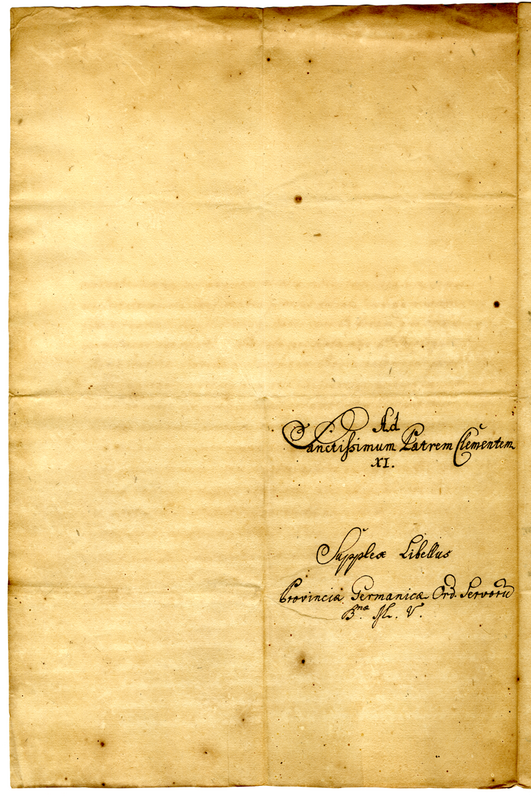 Ad
Sanctissimum Patrem Clementem
XI.
Supplex Libellus
Provinciæ Germanicæ Ord. Servorũ
Bmæ M. V.